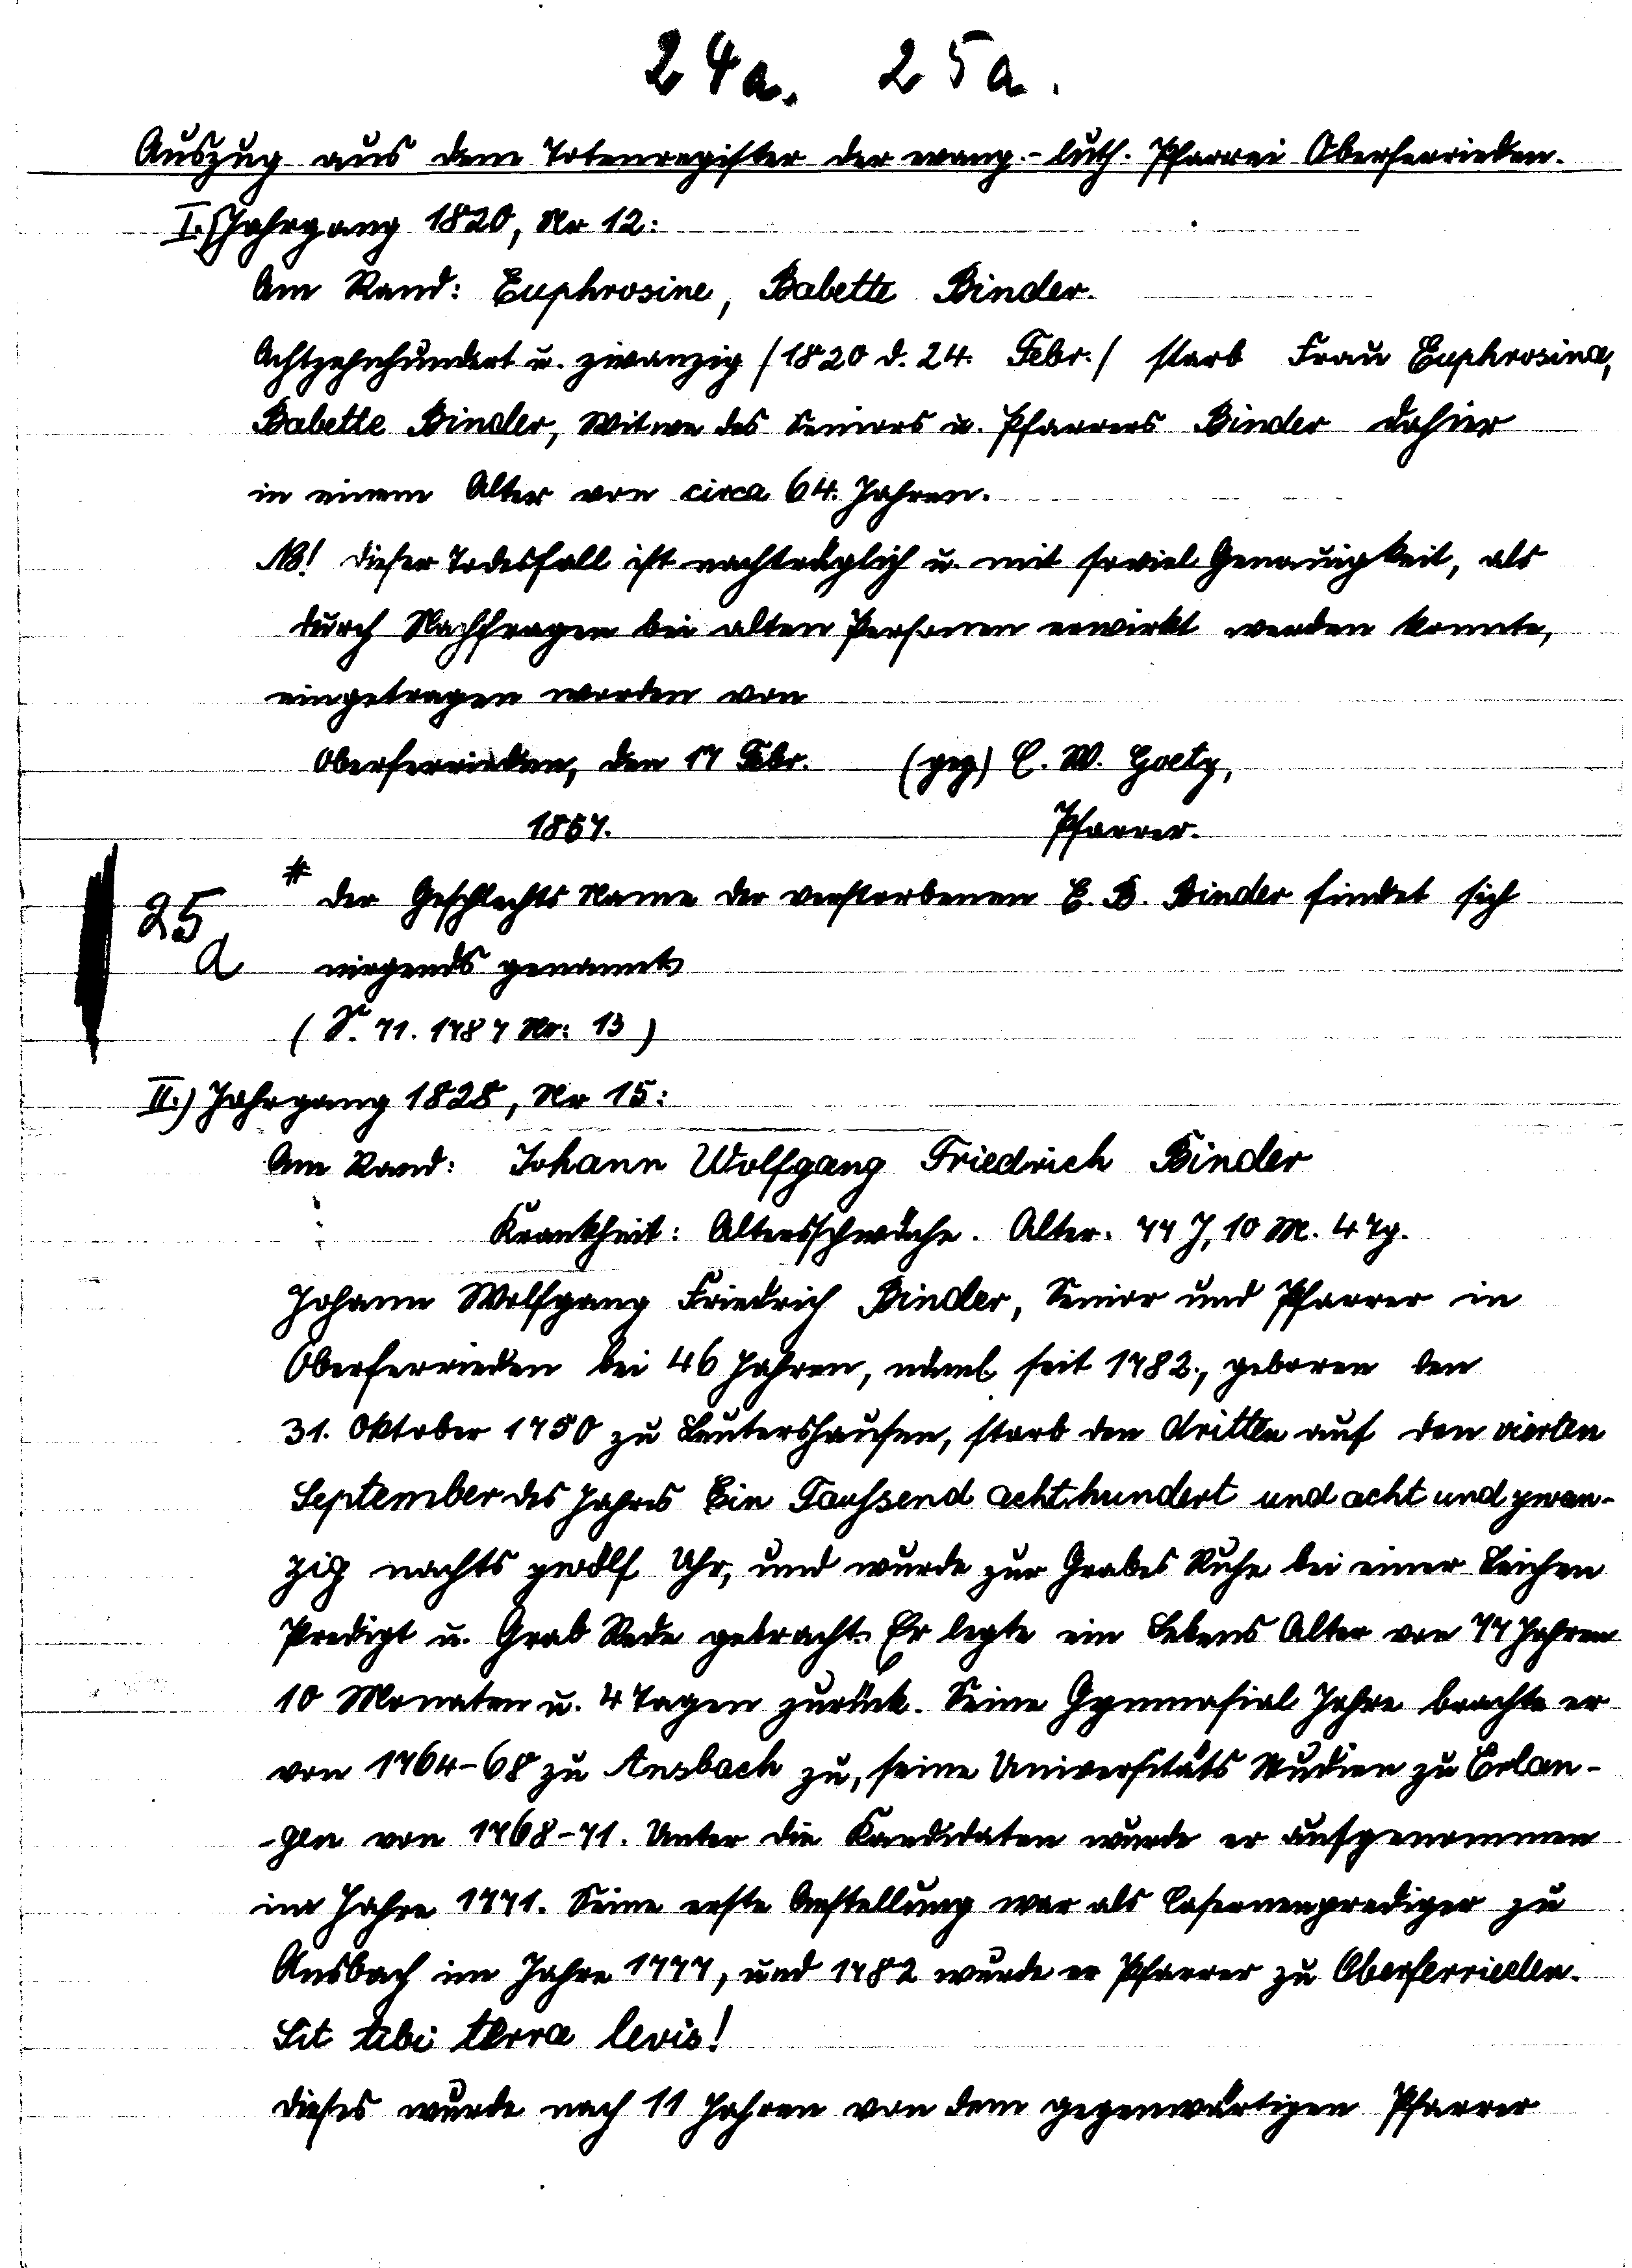 24a. 25a.
Auszug aus dem Totenregister der evang.-luth. Pfarrei Oberferrieden.
I.) Jahrgang 1820, Nr 12:
Am Rand: Euphrosine, Babette Binder.
Achtzehnhundert u. zwanzig /1820 d. 24. Febr./ starb Frau Euphrosina,
Babette Binder, Witwe des Seniors u. Pfarrers Binder dahier
in einem Alter von circa 64 Jahren.
NB! Dieser Todesfall ist nachträglich u. mit soviel Genauigkeit, als
durch Nachfragen bei alten Personen erwirkt werden konnte,
eingetragen worden von
Oberferrieden, den 17 Febr. (gez) C. W. Goetz,
1857. Pfarrer.
* Der Geschlechts Name der verstorbenen E. B. Binder findet sich
25
a nirgends genannt
(S. 71. 1787 Nr: 13)
II.) Jahrgang 1828, Nr 15:
Am Rand: Johann Wolfgang Friedrich Binder
Krankheit: Altersschwäche. Alter. 77 J, 10 M. 4 Tg.
Johann Wolfgang Friedrich Binder, Senior und Pfarrer in
Oberferrieden bei 46 Jahren, näml. seit 1782, geboren den
31. Oktober 1750 zu Leutershausen, starb den dritten auf den vierten
September des Jahres Ein Taußend achthundert und acht und zwan-
zig nachts zwölf Uhr, und wurde zur Grabes Ruhe bei einer Leichen
Predigt u. Grab Rede gebracht. Er legte ein Lebens Alter von 77 Jahren
10 Monaten u. 4 Tagen zurück. Seine Gymnasial Jahre brachte er
von 1764-68 zu Ansbach zu, seine Universitäts Studien zu Erlan-
-gen von 1768-71. Unter die Kandidaten wurde er aufgenommen
im Jahre 1771. Seine erste Anstellung war als Casernenprediger zu
Ansbach im Jahre 1777, und 1782 wurde er Pfarrer zu Oberferrieden.
Sit tibi terra levis!
Dieses wurde nach 11 Jahren von dem gegenwärtigen Pfarrer